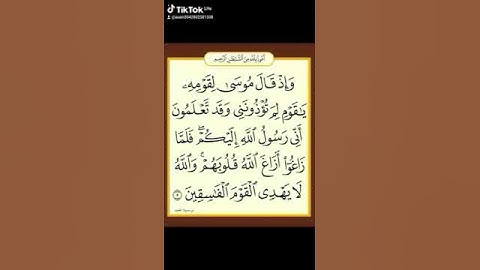 TikTok Lite
أعوذ بالله من الشيطان الرجيم
وَإِذْ قَالَ مُوسَىٰ لِقَوْمِهِۦ
يَـٰقَوْمِ لِمَ تُؤْذُونَنِى وَقَد تَّعْلَمُونَ
أَنِّى رَسُولُ ٱللَّهِ إِلَيْكُمْ ۖ فَلَمَّا
زَاغُوٓا۟ أَزَاغَ ٱللَّهُ قُلُوبَهُمْ ۚ وَٱللَّهُ
لَا يَهْدِى ٱلْقَوْمَ ٱلْفَـٰسِقِينَ ٥